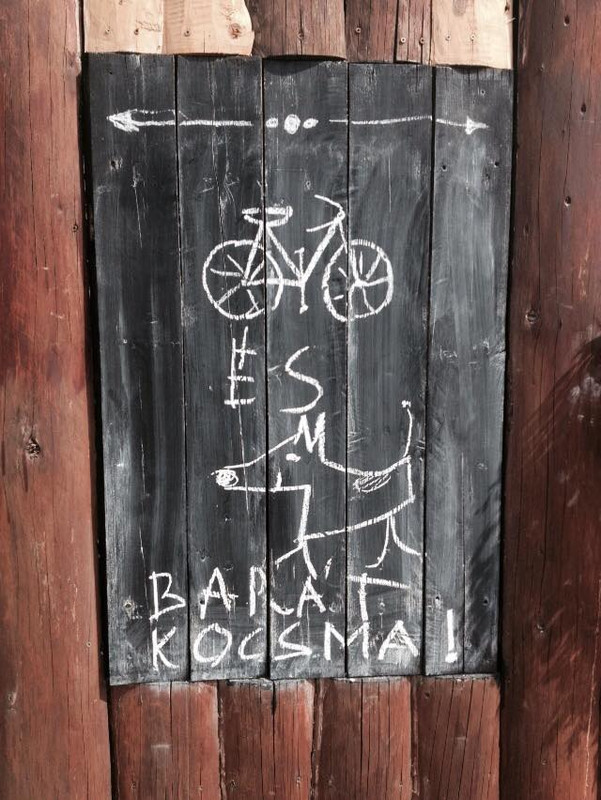 ÉS
BARÁT
KOCSMA!